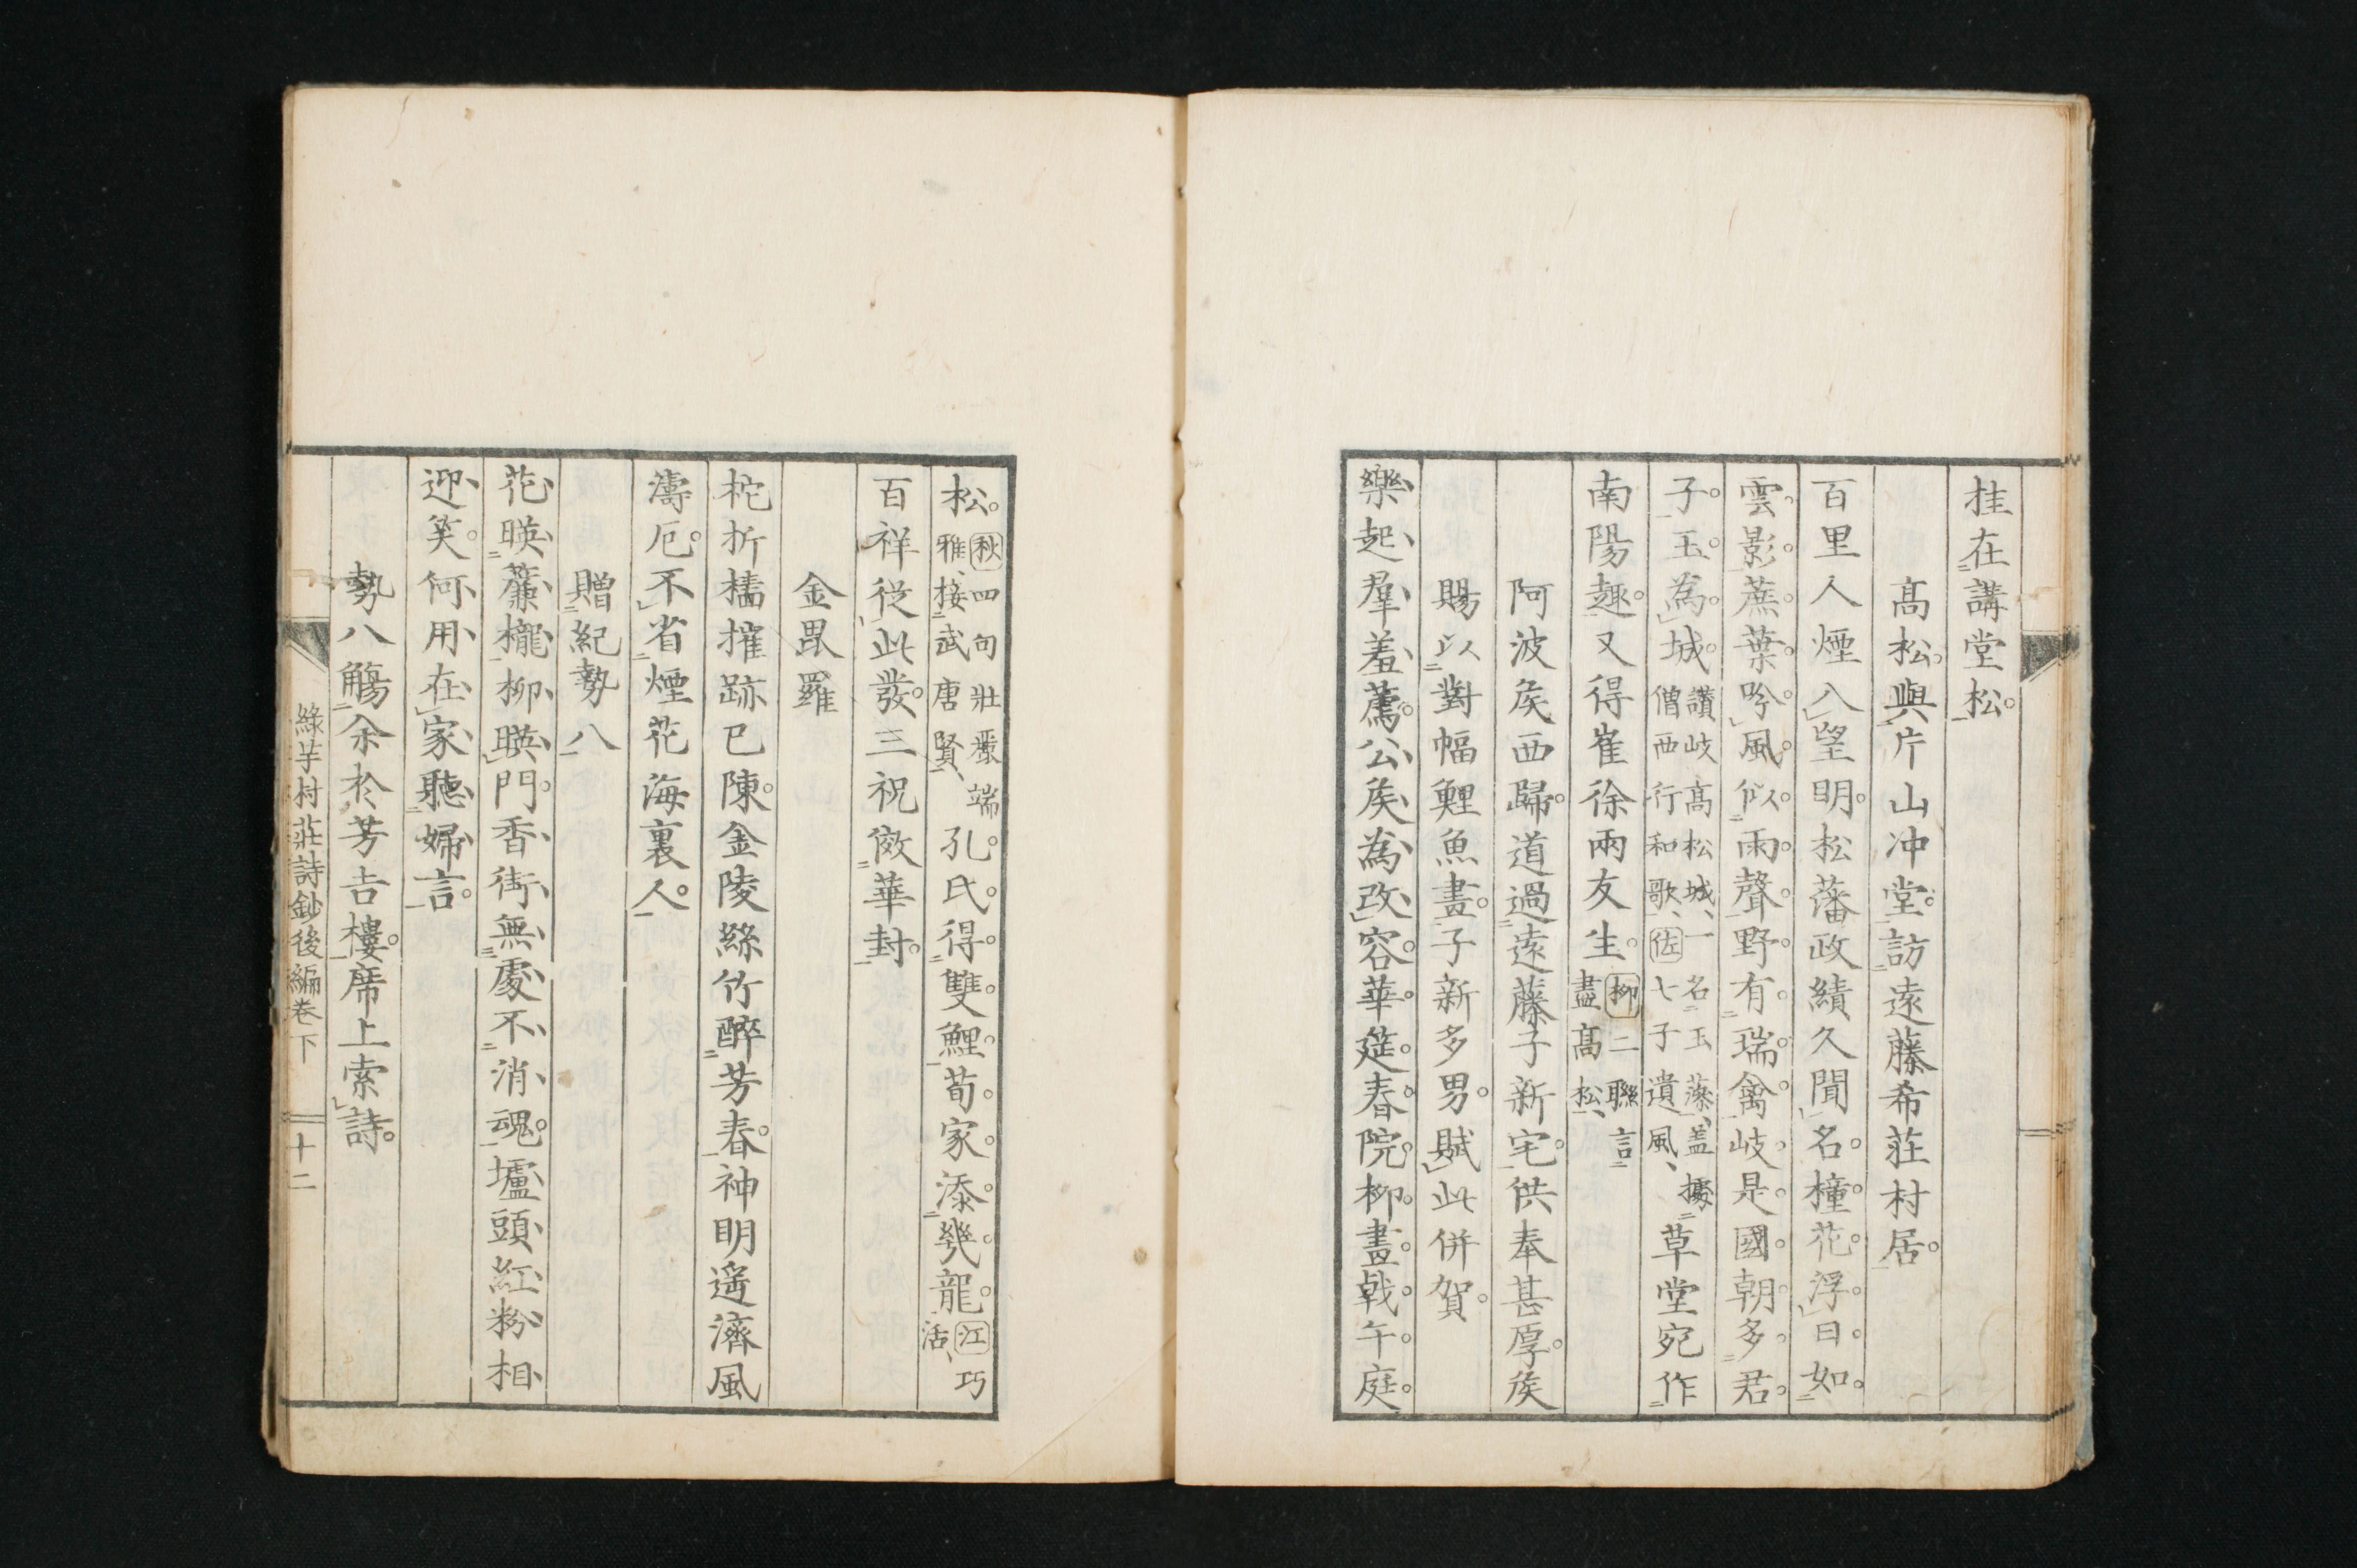 挂在講堂松。
高松。與片山冲堂。訪遠藤希莊村居。
百里人煙入望明。松藩政績久聞名。橦花浮日。如
雲影。蕪葉吟風。似雨聲。野有瑞禽。岐是國。朝多君
子。玉。為城。讚岐高松城、一名玉藻、盖據
僧西行和歌、佐七子遺風、草堂宛作
南陽趣。又得崔徐兩友生。柳二聯言
盡高松、
阿波矦西歸。道過遠藤子新宅。供奉甚厚。矦
賜以對幅鯉魚畫。子新多男。賦此併賀。
樂起羣羞薦。公矦為改容。華筵。春院柳。畫戟。午庭。
松。秋四句壯嚴端
雅、接武唐賢、孔氏。得雙鯉。荀家。添幾龍。江巧
活、
百祥從此發。三祝倣華封。
金毘羅
柁折檣摧跡已陳。金陵絲竹醉芳春。神明遙濟風
濤厄。不省煙花海裏人。
贈紀勢八
花暎簾櫳柳暎門。香街無處不消魂。壚頭紅粉相
迎笑。何用在家聽婦言。
勢八觴余於芳吉樓。席上索詩。
綠芋村莊詩鈔後編卷下 十二